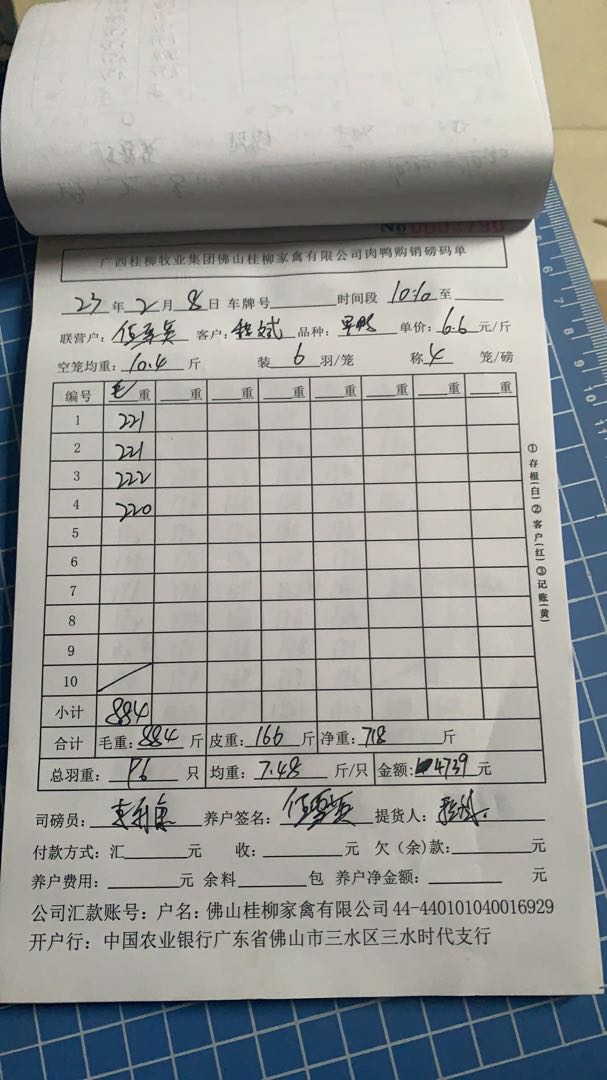 No 0003796
广西桂柳牧业集团佛山桂柳家禽有限公司肉鸭购销磅码单
23年2月8日 车牌号 时间段 10:10至
联营户: 客户:程斌 品种: 单价:6.6元/斤
空笼均重:10.4斤 装6羽/笼 称4笼/磅
编号 毛重 重 重 重 重 重 重 重
1 221
2 221
3 222
4 220
5
6
7
8
9
10
小计 884
合计 毛重:884斤 皮重:166斤 净重:718斤
总羽重:96只 均重:7.48斤/只 金额:4739元
司磅员: 养户签名: 提货人:程斌
付款方式:汇 元 收: 元 欠(余)款: 元
养户费用: 元 余料 包 养户净金额: 元
公司汇款账号:户名:佛山桂柳家禽有限公司 44-440101040016929
开户行:中国农业银行广东省佛山市三水区三水时代支行
①存根(白)②客户(红)③记账(黄)